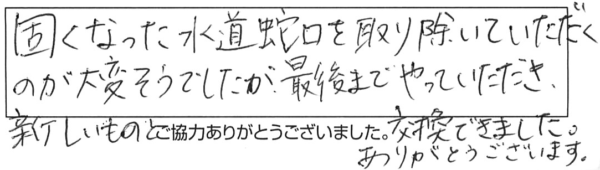 固くなった水道蛇口を取り除いていただく
のが大変そうでしたが、最後までやっていただき、
新しいものと交換できました。
ご協力ありがとうございました。
ありがとうございます。